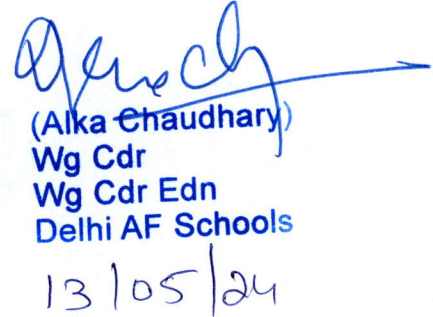 (Alka Chaudhary)
Wg Cdr
Wg Cdr Edn
Delhi AF Schools
13/05/24